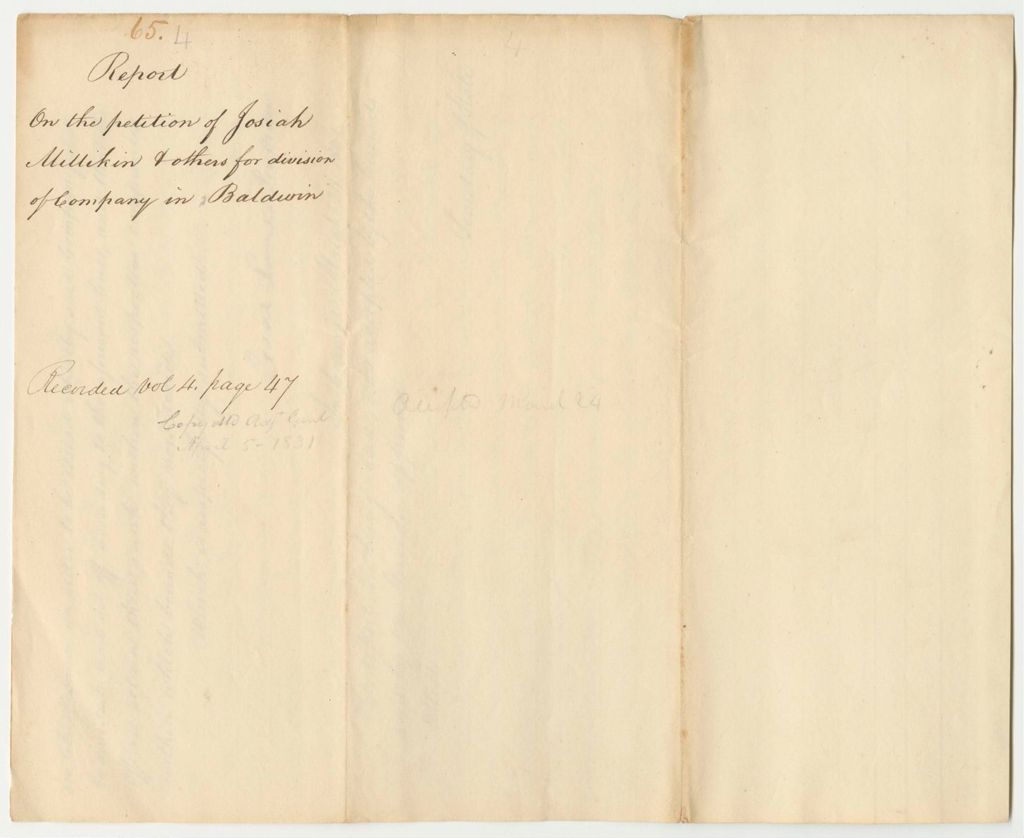 65. 4
Report
On the petition of Josiah
Millikin & others for division
of Company in Baldwin
Recorded vol 4. page 47
Copy
April 5 - 1831
March 24
4